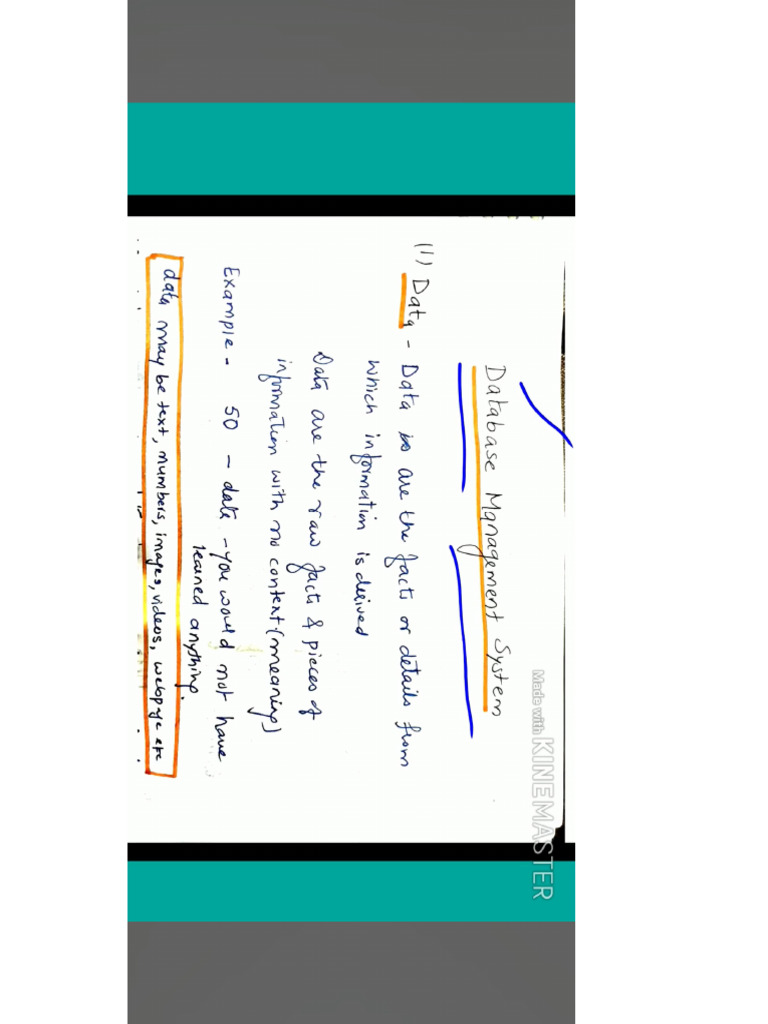 Database Management System
(1) Data - Data is are the facts or details from
which information is derived
Data are the raw facts & pieces of
information with no context (meaning)
Example - 50 - data - you would not have
learned anything.
data may be text, numbers, images, videos, webpage etc
Made with KINEMASTER